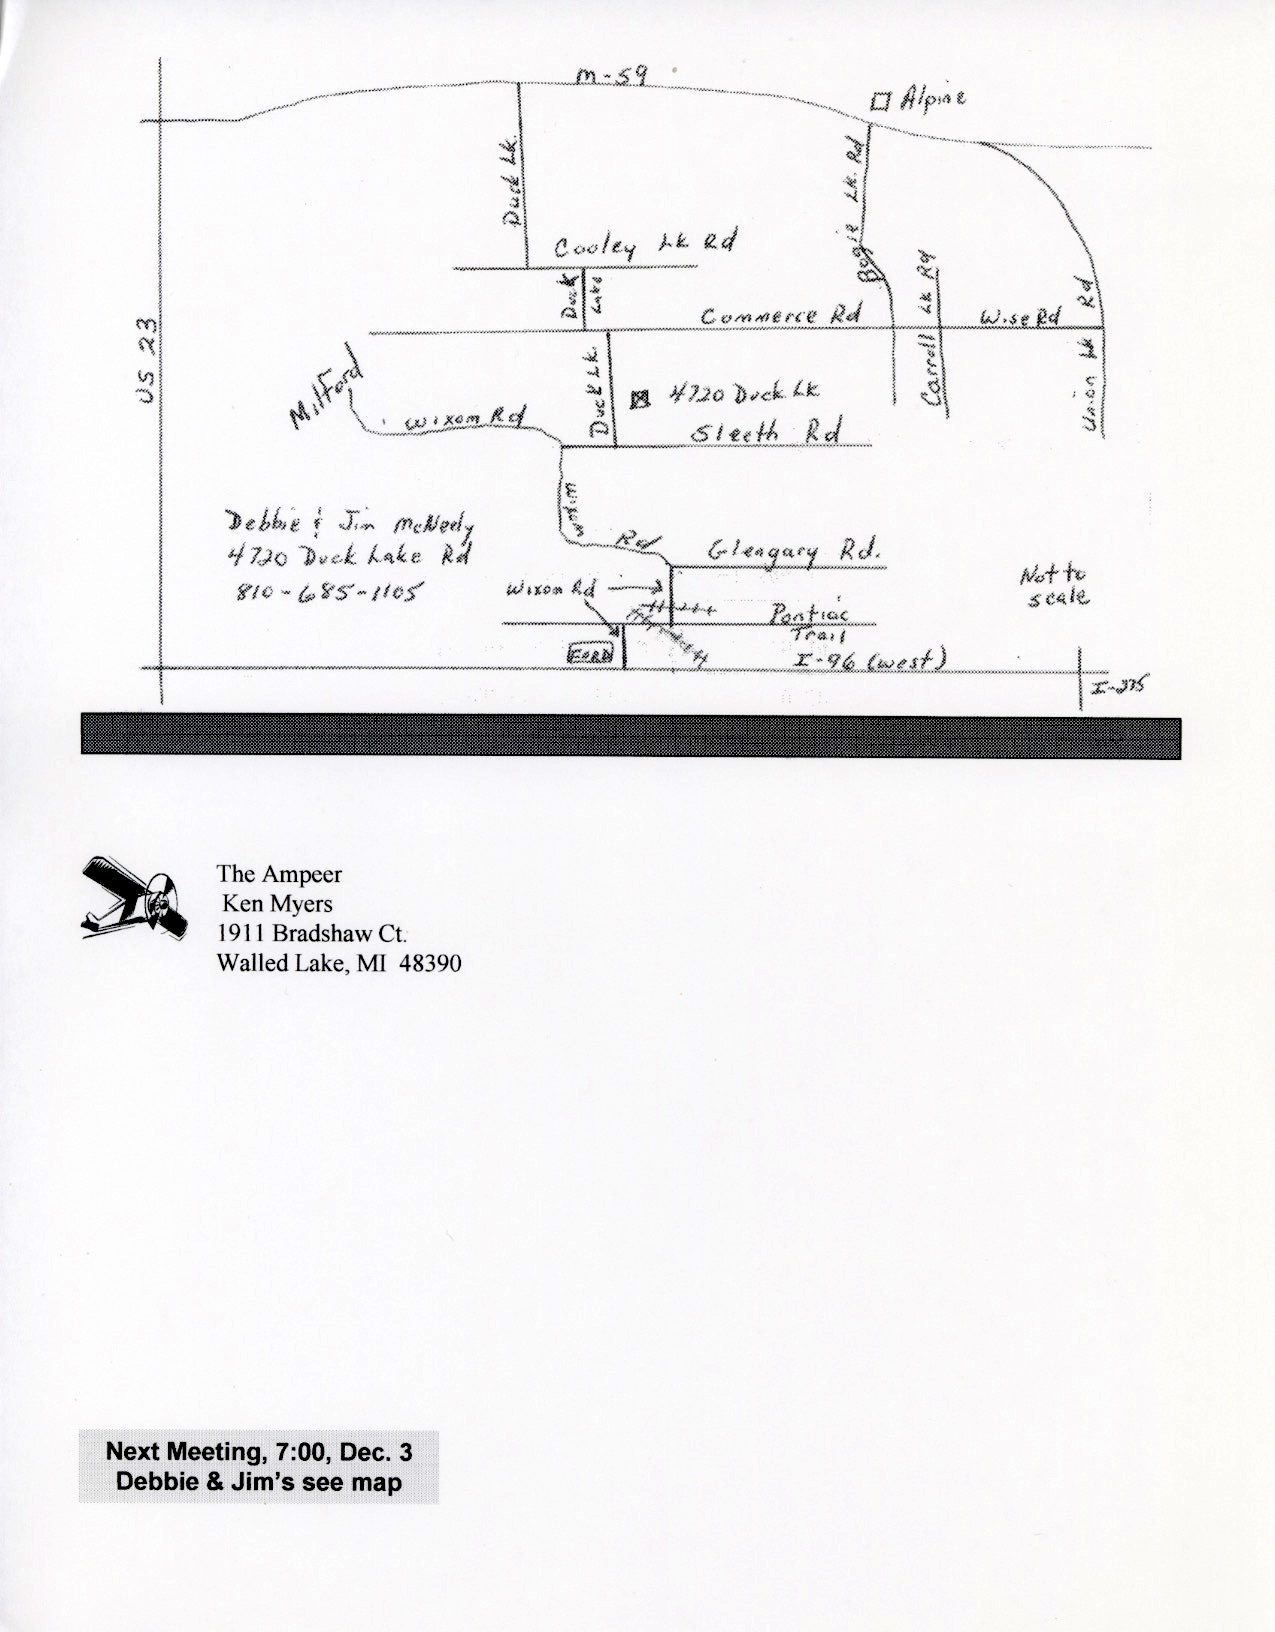 M-59
Alpine
Duck Lk.
Bogie Lk. Rd
Cooley Lk Rd
Duck Lake
Carroll Lk Rd
Commerce Rd
Wise Rd
Union Lk Rd
US 23
Milford
Duck Lk.
4720 Duck Lk
Wixom Rd
Sleeth Rd
Wixom Rd
Debbie & Jim McNeely
4720 Duck Lake Rd
810-685-1105
Glengary Rd.
Wixom Rd
Not to
scale
Pontiac
Trail
FORD
I-96 (west)
I-275
The Ampeer
Ken Myers
1911 Bradshaw Ct.
Walled Lake, MI 48390
Next Meeting, 7:00, Dec. 3
Debbie & Jim's see map